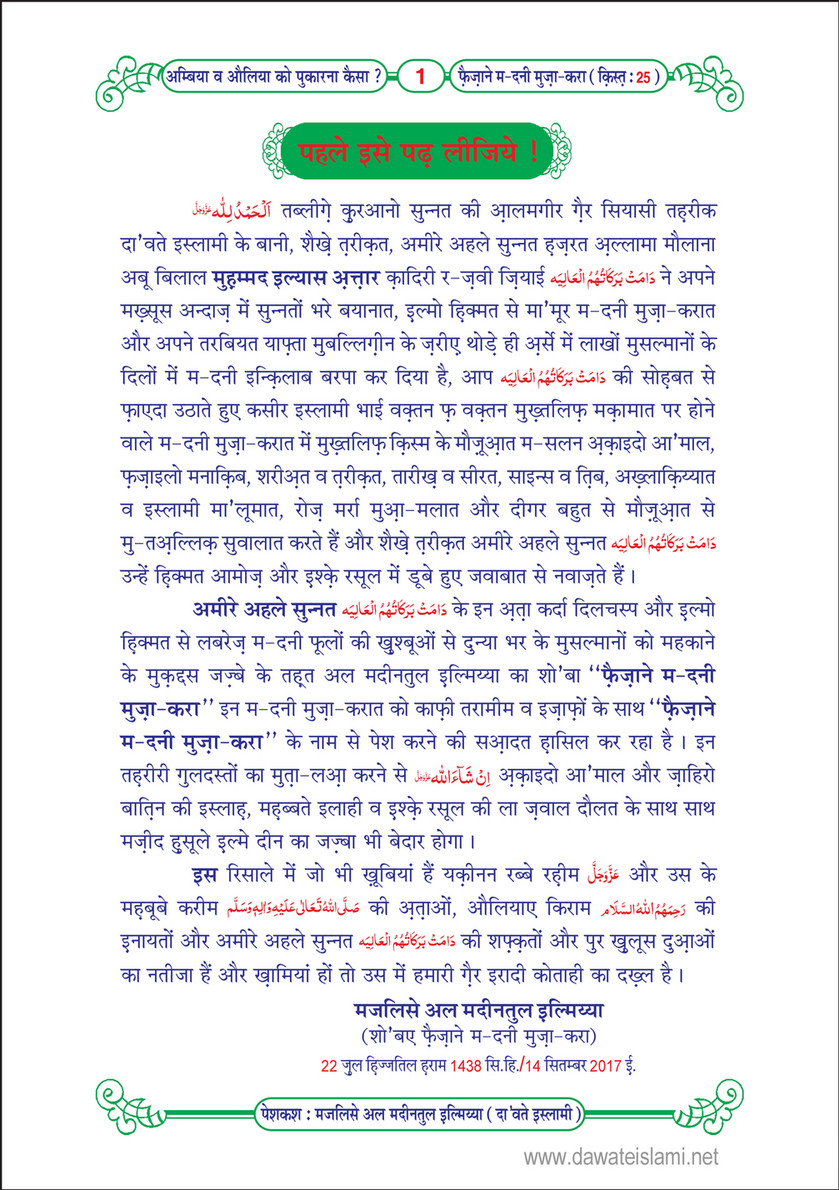 अम्बिया व औलिया को पुकारना कैसा ? 1 फ़ैज़ाने म-दनी मुज़ा-करा ( क़िस्त़ : 25 )
पहले इसे पढ़ लीजिये !
اَلْحَمْدُ لِلّٰه عَزَّوَجَلَّ तब्लीग़े कुरआनो सुन्नत की आ़लमगीर ग़ैर सियासी तह़रीक
दा'वते इस्लामी के बानी, शैख़े त़रीक़त, अमीरे अहले सुन्नत ह़ज़रत अ़ल्लामा मौलाना
अबू बिलाल मुह़म्मद इल्यास अ़त्त़ार क़ादिरी र-ज़वी ज़ियाई دَامَتْ بَرَكَاتُهُمُ الْعَالِيَه ने अपने
मख़्सूस अन्दाज़ में सुन्नतों भरे बयानात, इ़ल्मो ह़िक्मत से मा'मूर म-दनी मुज़ा-करात
और अपने तरबियत याफ़्ता मुबल्लिग़ीन के ज़रीए थोड़े ही अ़र्से में लाखों मुसल्मानों के
दिलों में म-दनी इन्क़िलाब बरपा कर दिया है, आप دَامَتْ بَرَكَاتُهُمُ الْعَالِيَه की सोह़बत से
फ़ाएदा उठाते हुए कसीर इस्लामी भाई वक़्तन फ़ वक़्तन मुख़्तलिफ़ मक़ामात पर होने
वाले म-दनी मुज़ा-करात में मुख़्तलिफ़ क़िस्म के मौज़ूआ़त म-सलन अ़क़ाइदो आ'माल,
फ़ज़ाइलो मनाक़िब, शरीअ़त व त़रीक़त, तारीख़ व सीरत, साइन्स व त़िब, अख़्लाक़िय्यात
व इस्लामी मा'लूमात, रोज़ मर्रा मुआ़-मलात और दीगर बहुत से मौज़ूआ़त से
मु-तअ़ल्लिक़ सुवालात करते हैं और शैख़े त़रीक़त अमीरे अहले सुन्नत دَامَتْ بَرَكَاتُهُمُ الْعَالِيَه
उन्हें ह़िक्मत आमोज़ और इश्क़े रसूल में डूबे हुए जवाबात से नवाज़ते हैं ।
अमीरे अहले सुन्नत دَامَتْ بَرَكَاتُهُمُ الْعَالِيَه के इन अ़त़ा कर्दा दिलचस्प और इ़ल्मो
ह़िक्मत से लबरेज़ म-दनी फूलों की खुश्बूओं से दुन्या भर के मुसल्मानों को महकाने
के मुक़द्दस जज़्बे के तह़त अल मदीनतुल इ़ल्मिय्या का शो'बा ‘‘फ़ैज़ाने म-दनी
मुज़ा-करा’’ इन म-दनी मुज़ा-करात को काफ़ी तरामीम व इज़ाफ़ों के साथ ‘‘फ़ैज़ाने
म-दनी मुज़ा-करा’’ के नाम से पेश करने की सआ़दत ह़ासिल कर रहा है । इन
तह़रीरी गुलदस्तों का मुत़ा-लआ़ करने से اِنْ شَآءَ اللّٰه عَزَّوَجَلَّ अ़क़ाइदो आ'माल और ज़ाहिरो
बात़िन की इस्लाह़, मह़ब्बते इलाही व इश्क़े रसूल की ला ज़वाल दौलत के साथ साथ
मज़ीद हुसूले इल्मे दीन का जज़्बा भी बेदार होगा ।
इस रिसाले में जो भी ख़ूबियां हैं यक़ीनन रब्बे रह़ीम عَزَّوَجَلَّ और उस के
मह़बूबे करीम صَلَّى اللهُ تَعَالٰى عَلَيْهِ وَاٰلِهٖ وَسَلَّم की अ़त़ाओं, औलियाए किराम رَحِمَهُمُ اللهُ السَّلَام की
इनायतों और अमीरे अहले सुन्नत دَامَتْ بَرَكَاتُهُمُ الْعَالِيَه की शफ़्क़तों और पुर खुलूस दुआ़ओं
का नतीजा हैं और ख़ामियां हों तो उस में हमारी ग़ैर इरादी कोताही का दख़्ल है ।
मजलिसे अल मदीनतुल इ़ल्मिय्या
(शो'बए फ़ैज़ाने म-दनी मुज़ा-करा)
22 जुल हि़ज्जतिल ह़राम 1438 सि.हि./14 सितम्बर 2017 ई.
पेशकश : मजलिसे अल मदीनतुल इ़ल्मिय्या ( दा'वते इस्लामी )
www.dawateislami.net